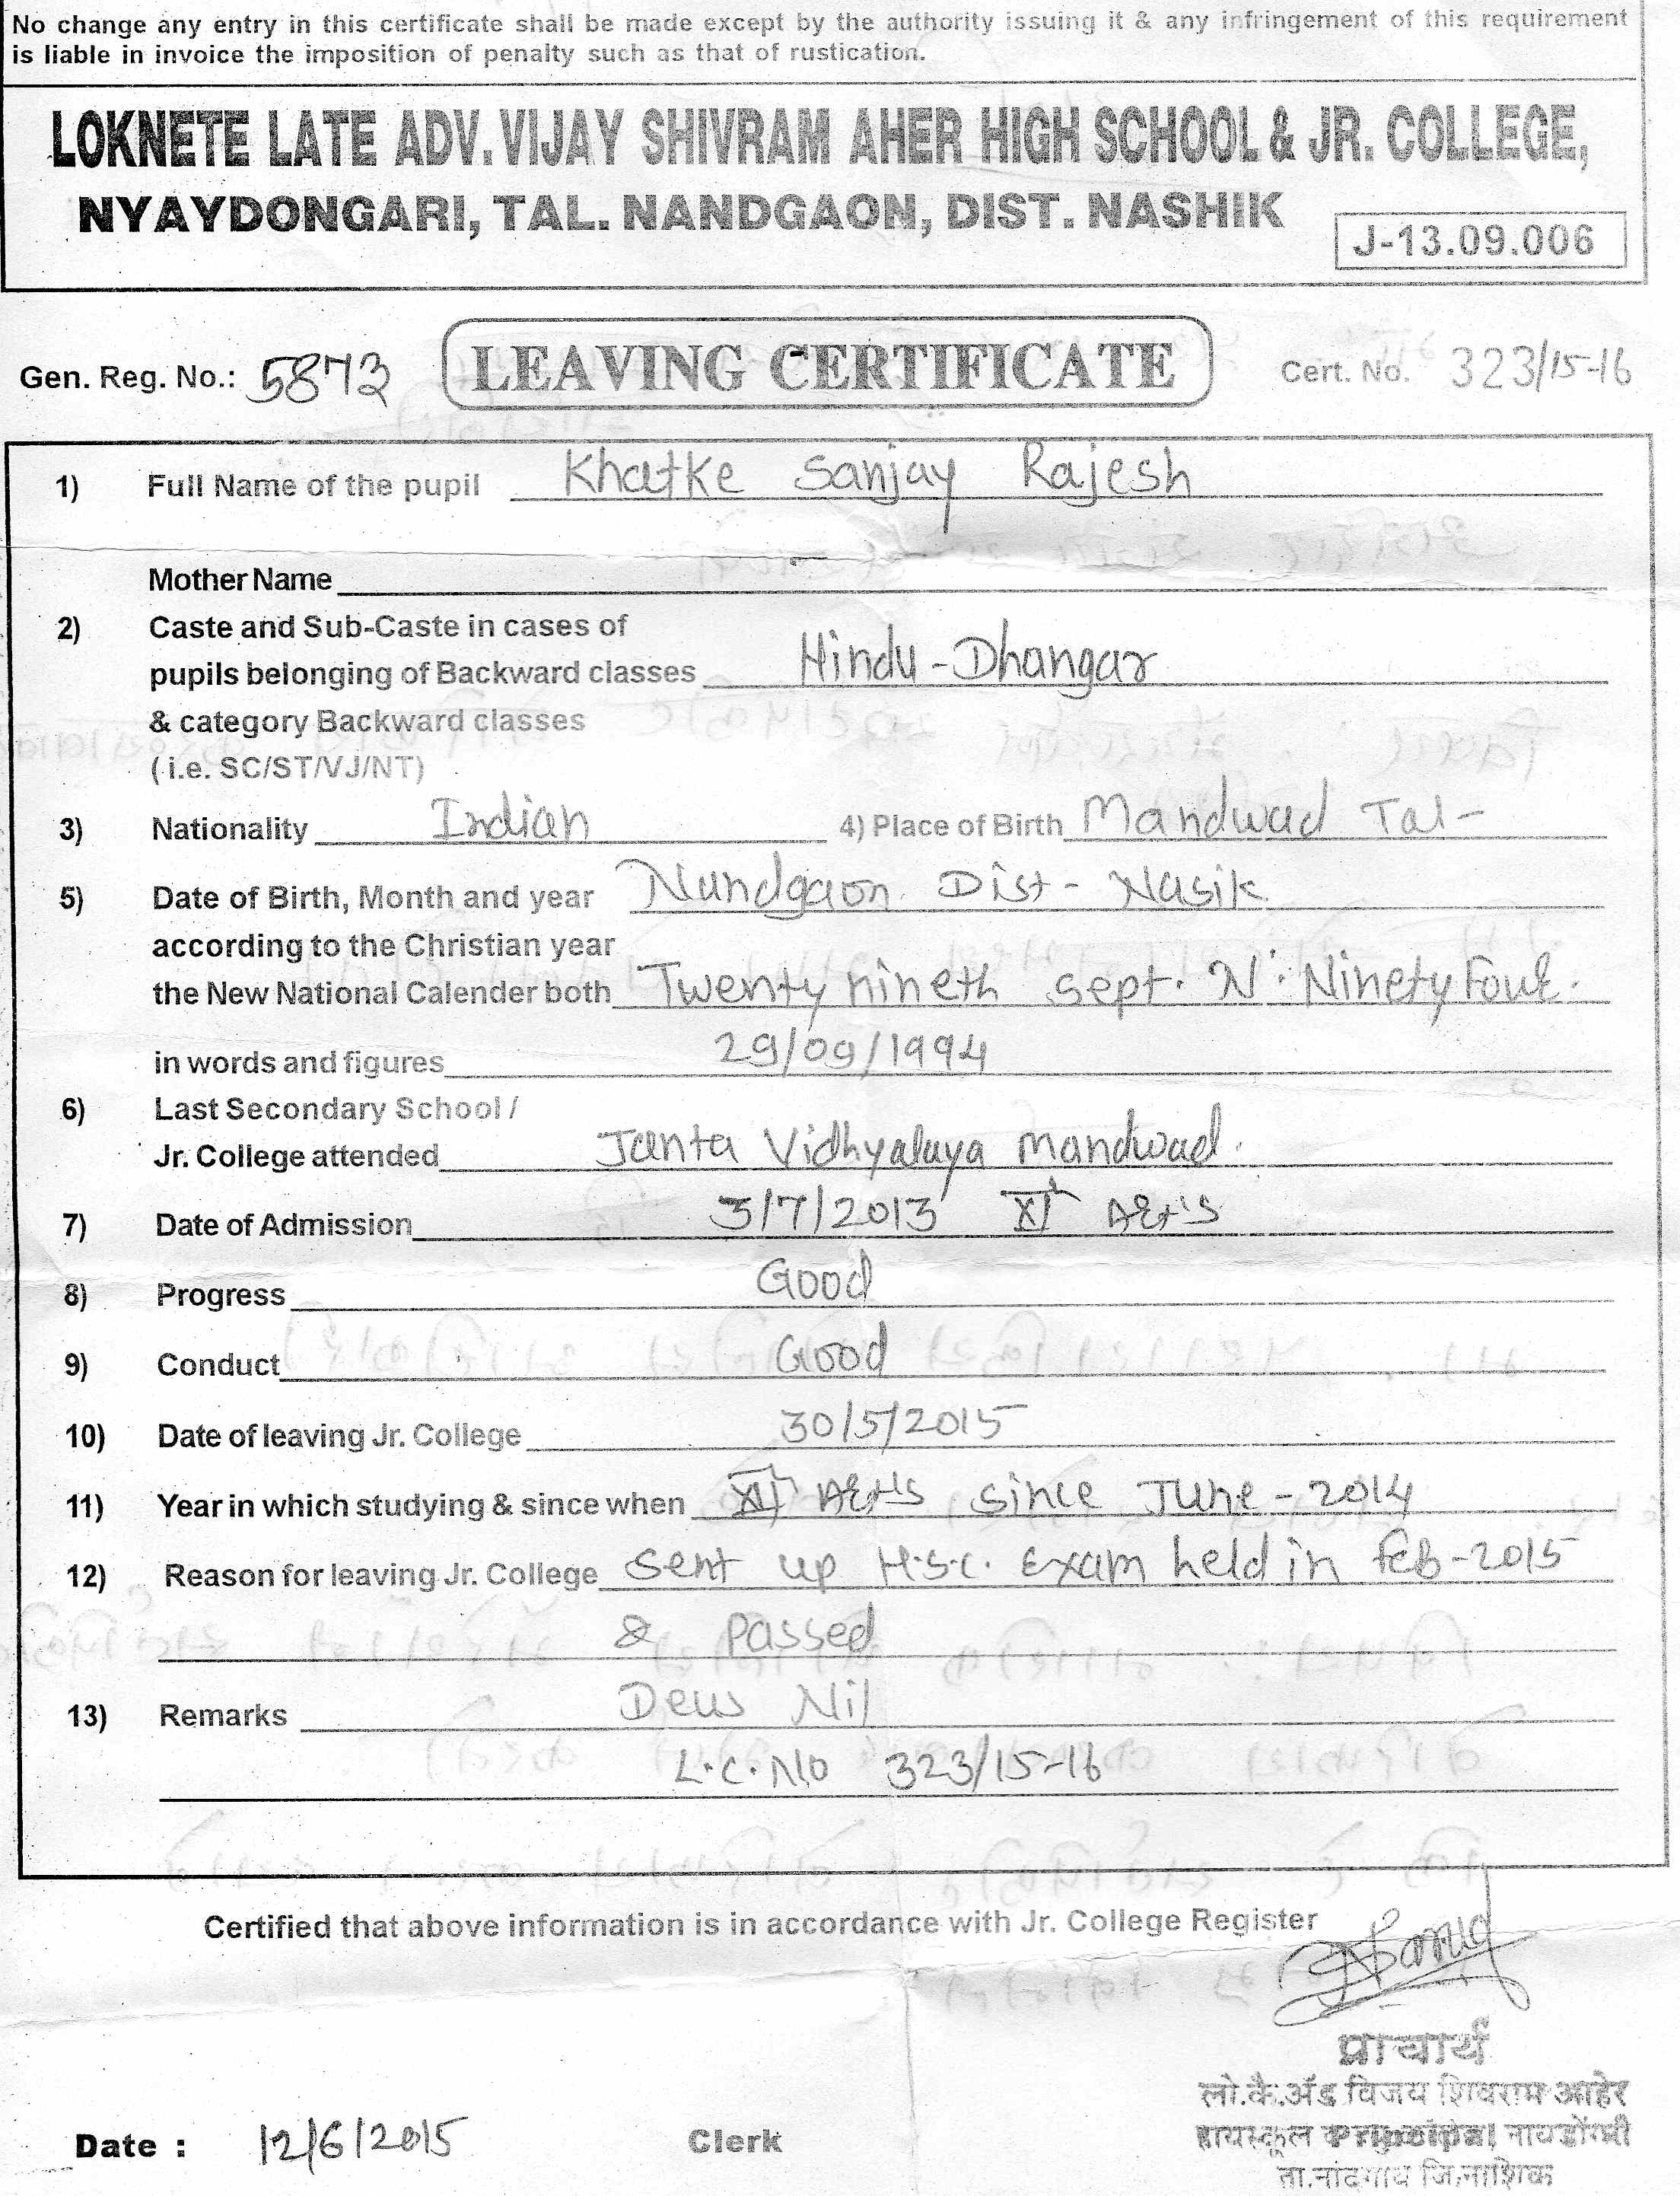 No change any entry in this certificate shall be made except by the authority issuing it & any infringement of this requirement
is liable in invoice the imposition of penalty such as that of rustication.
LOKNETE LATE ADV. VIJAY SHIVRAM AHER HIGH SCHOOL & JR. COLLEGE,
NYAYDONGARI, TAL. NANDGAON, DIST. NASHIK
J-13.09.006
Gen. Reg. No.: 5873 LEAVING CERTIFICATE Cert. No. 323/15-16
1) Full Name of the pupil Khatke Sanjay Rajesh
Mother Name
2) Caste and Sub-Caste in cases of
pupils belonging of Backward classes Hindu - Dhangar
& category Backward classes
( i.e. SC/ST/VJ/NT)
3) Nationality Indian 4) Place of Birth Mandwad Tal-
5) Date of Birth, Month and year Nandgaon. Dist - Nasik
according to the Christian year
the New National Calender both Twenty nineth sept. N. Ninety Four.
in words and figures 29/09/1994
6) Last Secondary School /
Jr. College attended Janta Vidhyalaya mandwad.
7) Date of Admission 3/7/2013 XI Art's
8) Progress Good
9) Conduct Good
10) Date of leaving Jr. College 30/5/2015
11) Year in which studying & since when XII Art's since June - 2014
12) Reason for leaving Jr. College Sent up H.S.C. Exam held in feb-2015
& Passed
13) Remarks Dews Nil
L.C.No 323/15-16
Certified that above information is in accordance with Jr. College Register
प्राचार्य
लो.कै.अ‍ॅड विजय शिवराम आहेर
हायस्कूल Principal नायडोंगरी
ता.नांदगाव जि.नाशिक
Date : 12/6/2015 Clerk